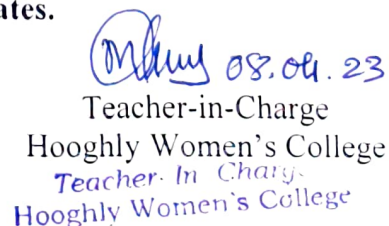 ates.
08.04.23
Teacher-in-Charge
Hooghly Women's College
Teacher- In Charg.
Hooghly Women's College